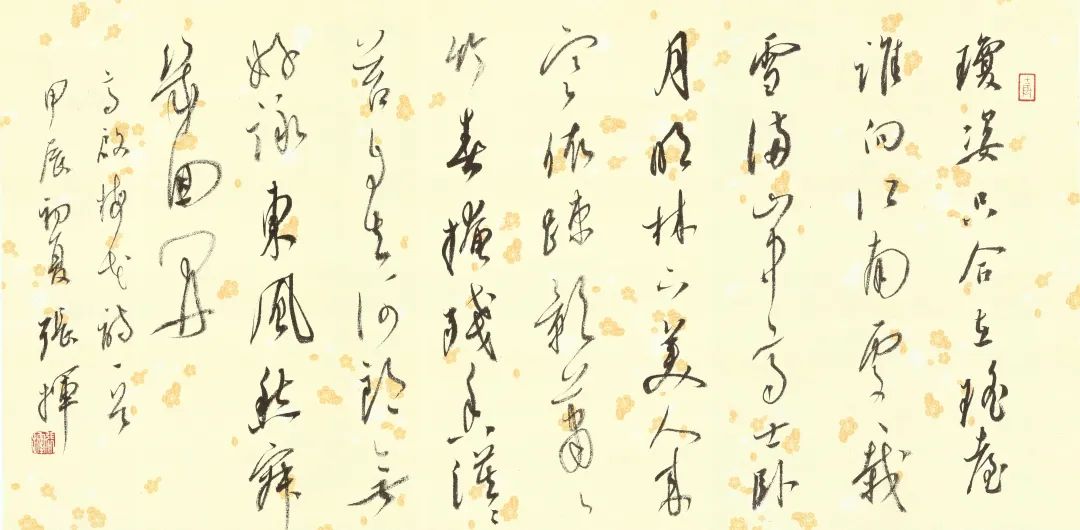 瓊姿只合在瑤臺
誰向江南處〻栽
雪滿山中高士卧
月明林下美人來
寒依疎影蕭〻
竹春掩殘香漠〻
苔自去何郎無
好詠東風愁寂
幾回開
高啟梅花詩一首
甲辰初夏張揮